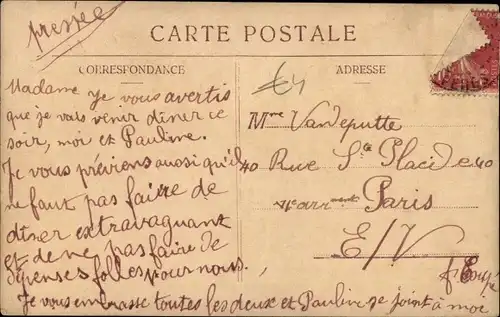 pressée
CARTE POSTALE
CORRESPONDANCE
ADRESSE
€4
Madame Je vous avertis
que je vais venir dîner ce
soir, moi et Pauline.
Je vous préviens aussi qu'il
ne faut pas faire de
dîner extravaguant
et de ne pas faire de
dépenses folles pour nous.
Je vous embrasse toutes les deux et Pauline se joint à moi
Mme Vandeputte
40 Rue Ste Placide 40
arr
Paris
E/V